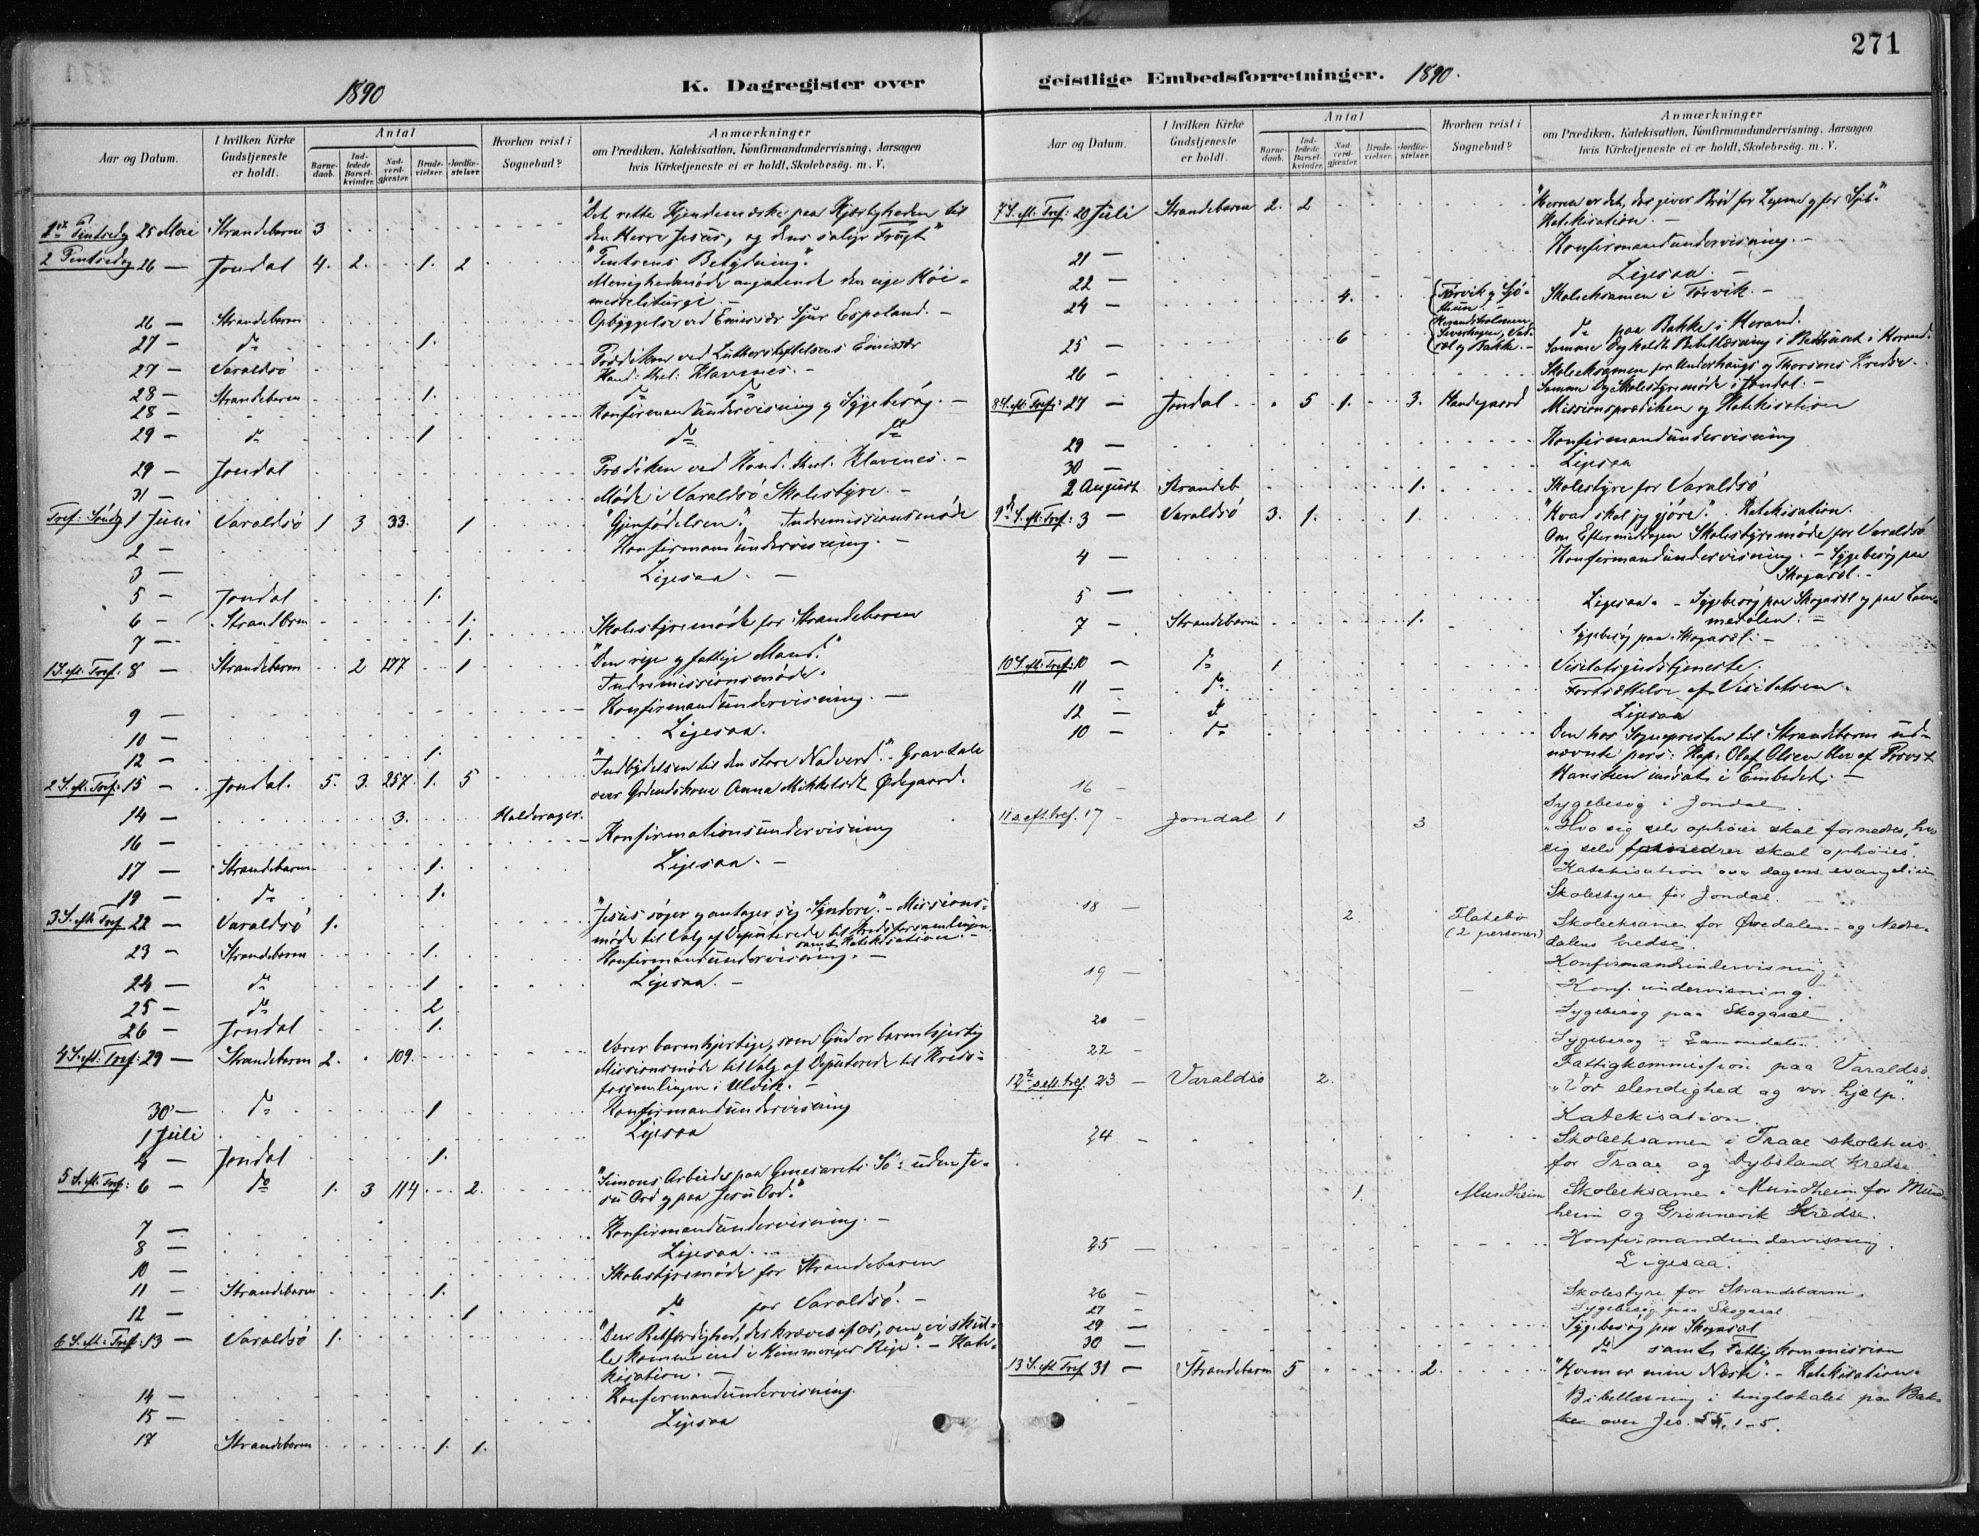 271
1890
K. Dagregister over
geistlige Embedsforretninger.
1890.
Aar og Datum.
I hvilken Kirke Gudstjeneste er holdt.
Antal
Barnedaab.
Indledede Barselkvinder.
Nadverdgjæster.
Brudevielser.
Jordfæstelser.
Hvorhen reist i Sognebud?
Anmærkninger
om Prædiken, Katekisation, Konfirmandundervisning, Aarsagen
hvis Kirketjeneste ei er holdt, Skolebesøg. m. V.
1ste Pintsedg 25 Mai Strandebarm 3 Det rette Kjendemærke paa Kjærligheden til
den Herre Jesus, og dens salige Frugt"
2 Pintsedg 26 — Jondal 4. 2. 1. 2 "Pintsens Betydning".
Menighedsmøde angaaende den nye Høi-
messeliturgi. —
26 — Strandebarm Opbyggelse ved Emissær Sjur Espeland. —
27 — do 1.
27 — Varaldsø Prædiken ved Lutherstiftelsens Emissær
Kand. theol: Klavenes. —
28 — Strandebarm 1. do do
28 — Konfirmandundervisning og Sygebesøg. —
29 — do 1 do do
29 — Jondal Prædiken ved Kand. theol. Klavenes. —
31 — Møde i Varaldsø Skolestyre. —
Tref: Søndg 1 Juni Varaldsø 1 3 33. 1 "Gjenfødelsen". Indremissionsmøde
2 — Konfirmandundervisning. —
3 — Ligesaa. —
5 — Jondal 1.
6 — Strandebrm 1. Skolestyremøde for Strandebarm
7 — 1.
1 S. eft. Tref. 8 — Strandebarm 2 177 1 "Den rige og fattige Mand".
Indremissionsmøde.
9 — Konfirmandundervisning. —
10 — Ligesaa.
12 — 1.
2 S. eft. Tref: 15 — Jondal. 5. 3. 257 1. 5 "Indbydelsen til den store Nadverd". Gravtale
over Anna Mikkelsdt Ødegaard.
14 — 3. Halderager.
16 — Konfirmationsundervisning
17 — Strandebarm 1. Ligesaa. —
19 — do 1.
3 S. eft. Tref 22 — Varaldsø 1. "Jesus søger og antager sig Syndere". — Missions-
møde til Valg af Deputerede til Kredsforsamlingen
samt Katekisation. —
23 — Strandebarm 1. Konfirmandundervisning. —
24 — do 1 Ligesaa. —
25 — do 2
26 — Jondal 1.
4 S. eft: Tref: 29 — Strandebarm 2. 109. Værer barmhjertige, som Gud er barmhjertig
Missionsmøde til Valg af Deputerede til Kreds-
forsamlingen i Ulvik. —
30 — do 1. Konfirmandundervisning
1 Juli Ligesaa
4 — Jondal 1.
5 S. eft. Tref: 6 — do 1. 3 114 2. "Simons Arbeide paa Genesarets Sø: uden Je-
su Ord og paa Jesu Ord."
7 — Konfirmandundervisning. —
8 — Ligesaa. —
10 — Skolestyremøde for Strandebarm
11 — Strandebarm 1.
12 — 1 do for Varaldsø. —
6 S. eft: Tref: 13 — Varaldsø 1. "Den Retfærdighed, der kræves af os, om vi skul-
le komme ind i Himmeriges Rige". — Kate-
kisation. —
14 — Konfirmandundervisning.
15 — Ligesaa
17 — Strandebarm 1. 1.
Aar og Datum.
I hvilken Kirke Gudstjeneste er holdt.
Antal
Barnedaab.
Indledede Barselkvinder.
Nadverdgjæster.
Brudevielser.
Jordfæstelser.
Hvorhen reist i Sognebud?
Anmærkninger
om Prædiken, Katekisation, Konfirmandundervisning, Aarsagen
hvis Kirketjeneste ei er holdt, Skolebesøg. m. V.
7 S. eft. Tref: 20 Juli Strandebarm 2. 2 "Herren er det, der giver Brød for Legeme og for Sjæl".
Katekisation. —
21 — Konfirmandundervisning. —
22 — Ligesaa. —
24 — 4. Skoleeksamen i Tørvik. —
25 — 6 og Bakke. — do paa Bakke i Herand.
Samme Dg holdt Bibellæsning i Bedehuset i Herand.
26 — Skoleeksamen for Underhaugs og Thorsnes Kredse.
Samme Dg Skolestyremøde i Jondal. —
8 S. eft. Tref: 27 — Jondal 5 1. 3. Handegaard Missionsprædiken og Katekisation
29 — Konfirmandundervisning
30 — Ligesaa
2 August Strandeb 1. Skolestyre for Varaldsø
9de S. eft. Tref: 3 — Varaldsø 3. 1. 1. "Hvad skal jeg gjøre". Katekisation.
Om Eftermiddagen Skolestyremøde for Varaldsø
4 — Konfirmandundervisning. — Sygebesøg paa
Skogasæl. —
5 — Ligesaa. — Sygebesøg paa Skogasæl og paa Lam-
medalen. —
7 — Strandebarm 1. Sygebesøg paa Skogasæl. —
10 S. eft. Tref: 10 — do 1 Visitatsgudstjeneste.
11 — do Fortsættelse af Visitatsen.
12 — do Ligesaa
10 — do Den hos Sognepresten til Strandebarm ud-
nævnte pers: Kap: Olaf Olsen blev af Provst
Hansteen indsat i Embedet. —
16 — Sygebesøg i Jondal
11 s eft. tref. 17 Jondal 1 3 "Hvo sig selv ophøier skal fornedres, hvo
sig selv fornedrer skal ophøies".
Katekisation over dagens evangelium
Skolestyre for Jondal.
18 — 2 Flatebø (2 personer) Skoleeksamen for Øvredalens og Nedre-
dalens kredse.
Konfirmandundervisning.
19 — Konf. undervisning.
20 — Sygebesøg paa Skogasæl.
22 — Sygebesøg i Lammedalen
Fattigkommission paa Varaldsø.
12te s. eft. tref. 23 — Varaldsø 2. "Vor elendighed og vor hjælp".
Katekisation
24 — Skoleeksamen i Traae skolehus
for Traae og Dybsland Kredse
1. Mundheim Skoleeksamen i Mundheim for Mund-
heim og Grønnevik Kredse.
25 — Konfirmandundervisning.
Ligesaa.
26 — Skolestyre for Strandebarm.
27 — Sygebesøg paa Skogasæl
29 — Sygebesøg paa Skogasæl
30 — do samt Fattigkommission
13 S. eft Tref 31 — Strandebarm 5 2. "Hvem er min Næste". — Katekisation.
Bibellæsning i tinglokalet paa Bak-
ken over Jes. 55, 1-5.